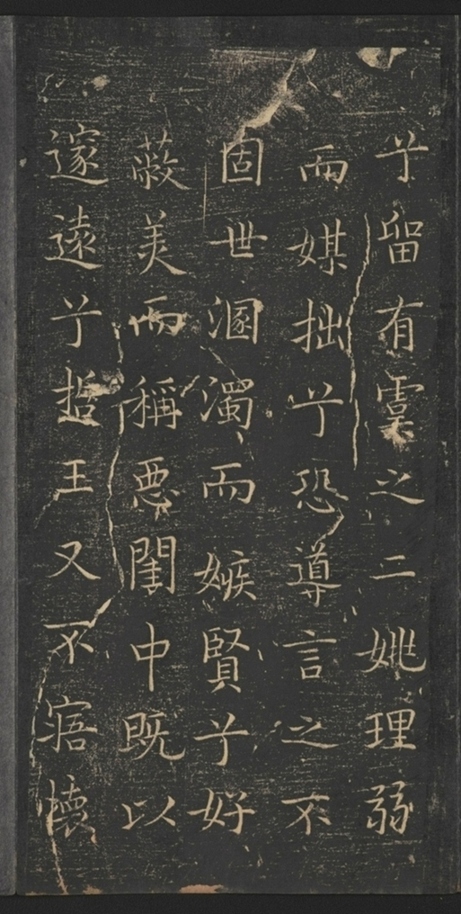 兮留有虞之二姚理弱
而媒拙兮恐導言之不
固世溷濁而嫉賢兮好
蔽美而稱悪閨中既以
邃遠兮哲王又不寤懷